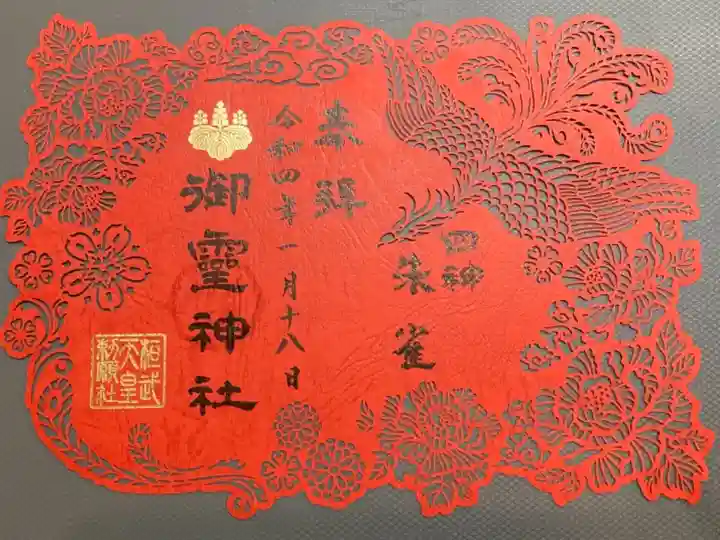 四神
朱雀
奉拝
令和四年一月十八日
御霊神社
桓武
天皇
勅願社